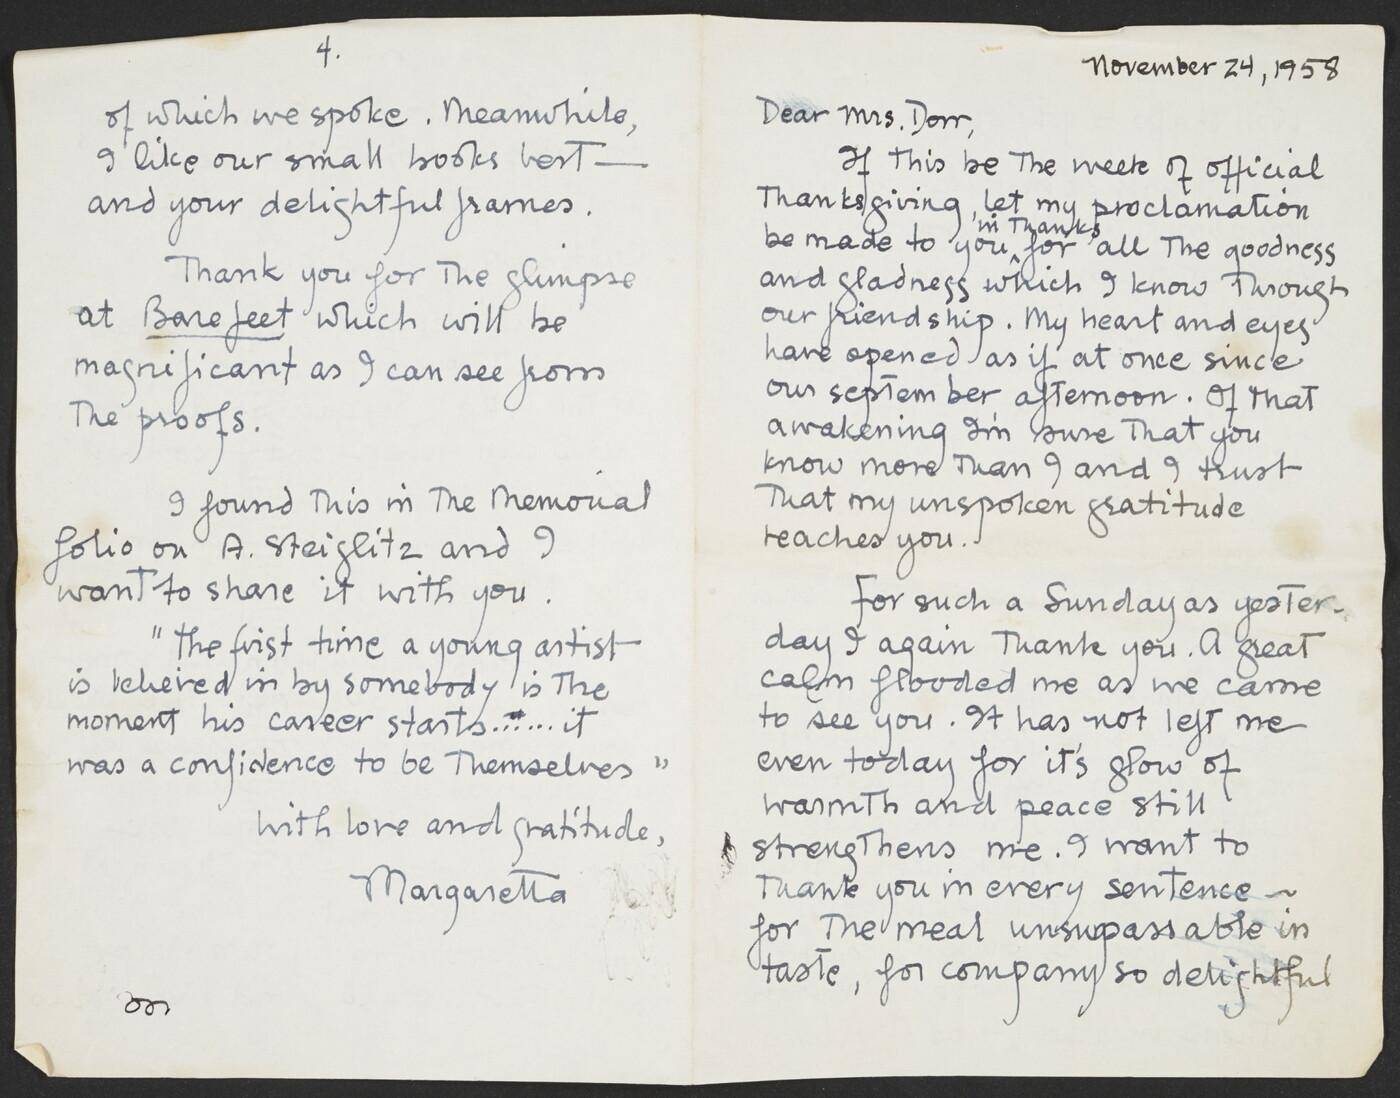 November 24, 1958
Dear Mrs. Dorr,
If this be the week of official
Thanksgiving, let my proclamation
in Thanks
be made to you ^ for all the goodness
and gladness which I know through
our friendship. My heart and eyes
have opened as if at once since
our september afternoon. Of that
awakening I'm sure that you
know more than I and I trust
that my unspoken gratitude
reaches you.
For such a Sunday as yester-
day I again Thank you. A great
calm flooded me as we came
to see you. It has not left me
even today for it's glow of
warmth and peace still
strengthens me. I want to
Thank you in every sentence ~
for the meal unsupassable in
taste, for company so delightful
4.
of which we spoke. Meanwhile,
I like our small books best —
and your delightful frames.
Thank you for the glimpse
at Bare feet which will be
magnificant as I can see from
The proofs.
I found this in the Memorial
folio on A. Steiglitz and I
want to share it with you.
"The first time a young artist
is believed in by somebody is the
moment his career starts....... it
was a confidence to be Themselves"
with love and gratitude,
Margaretta